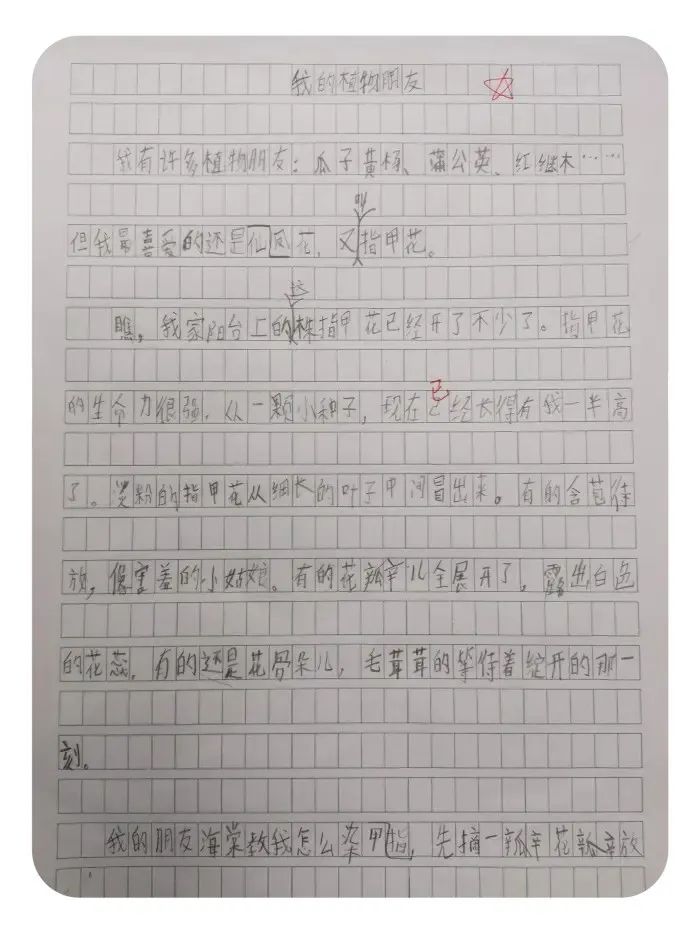 我的植物朋友
我有许多植物朋友：瓜子黄杨、蒲公英、红继木……
但我最喜爱的还是仙凤花，又叫指甲花。
瞧，我家阳台上的这株指甲花已经开了不少了。指甲花
的生命力很强，从一颗小种子，现在已经长得有我一半高
了。淡粉的指甲花从细长的叶子中间冒出来。有的含苞待
放，像害羞的小姑娘。有的花瓣儿全展开了，露出白色
的花蕊，有的还是花骨朵儿，毛茸茸的等待着绽开的那一
刻。
我的朋友海棠教我怎么染甲指，先摘一瓣花瓣放